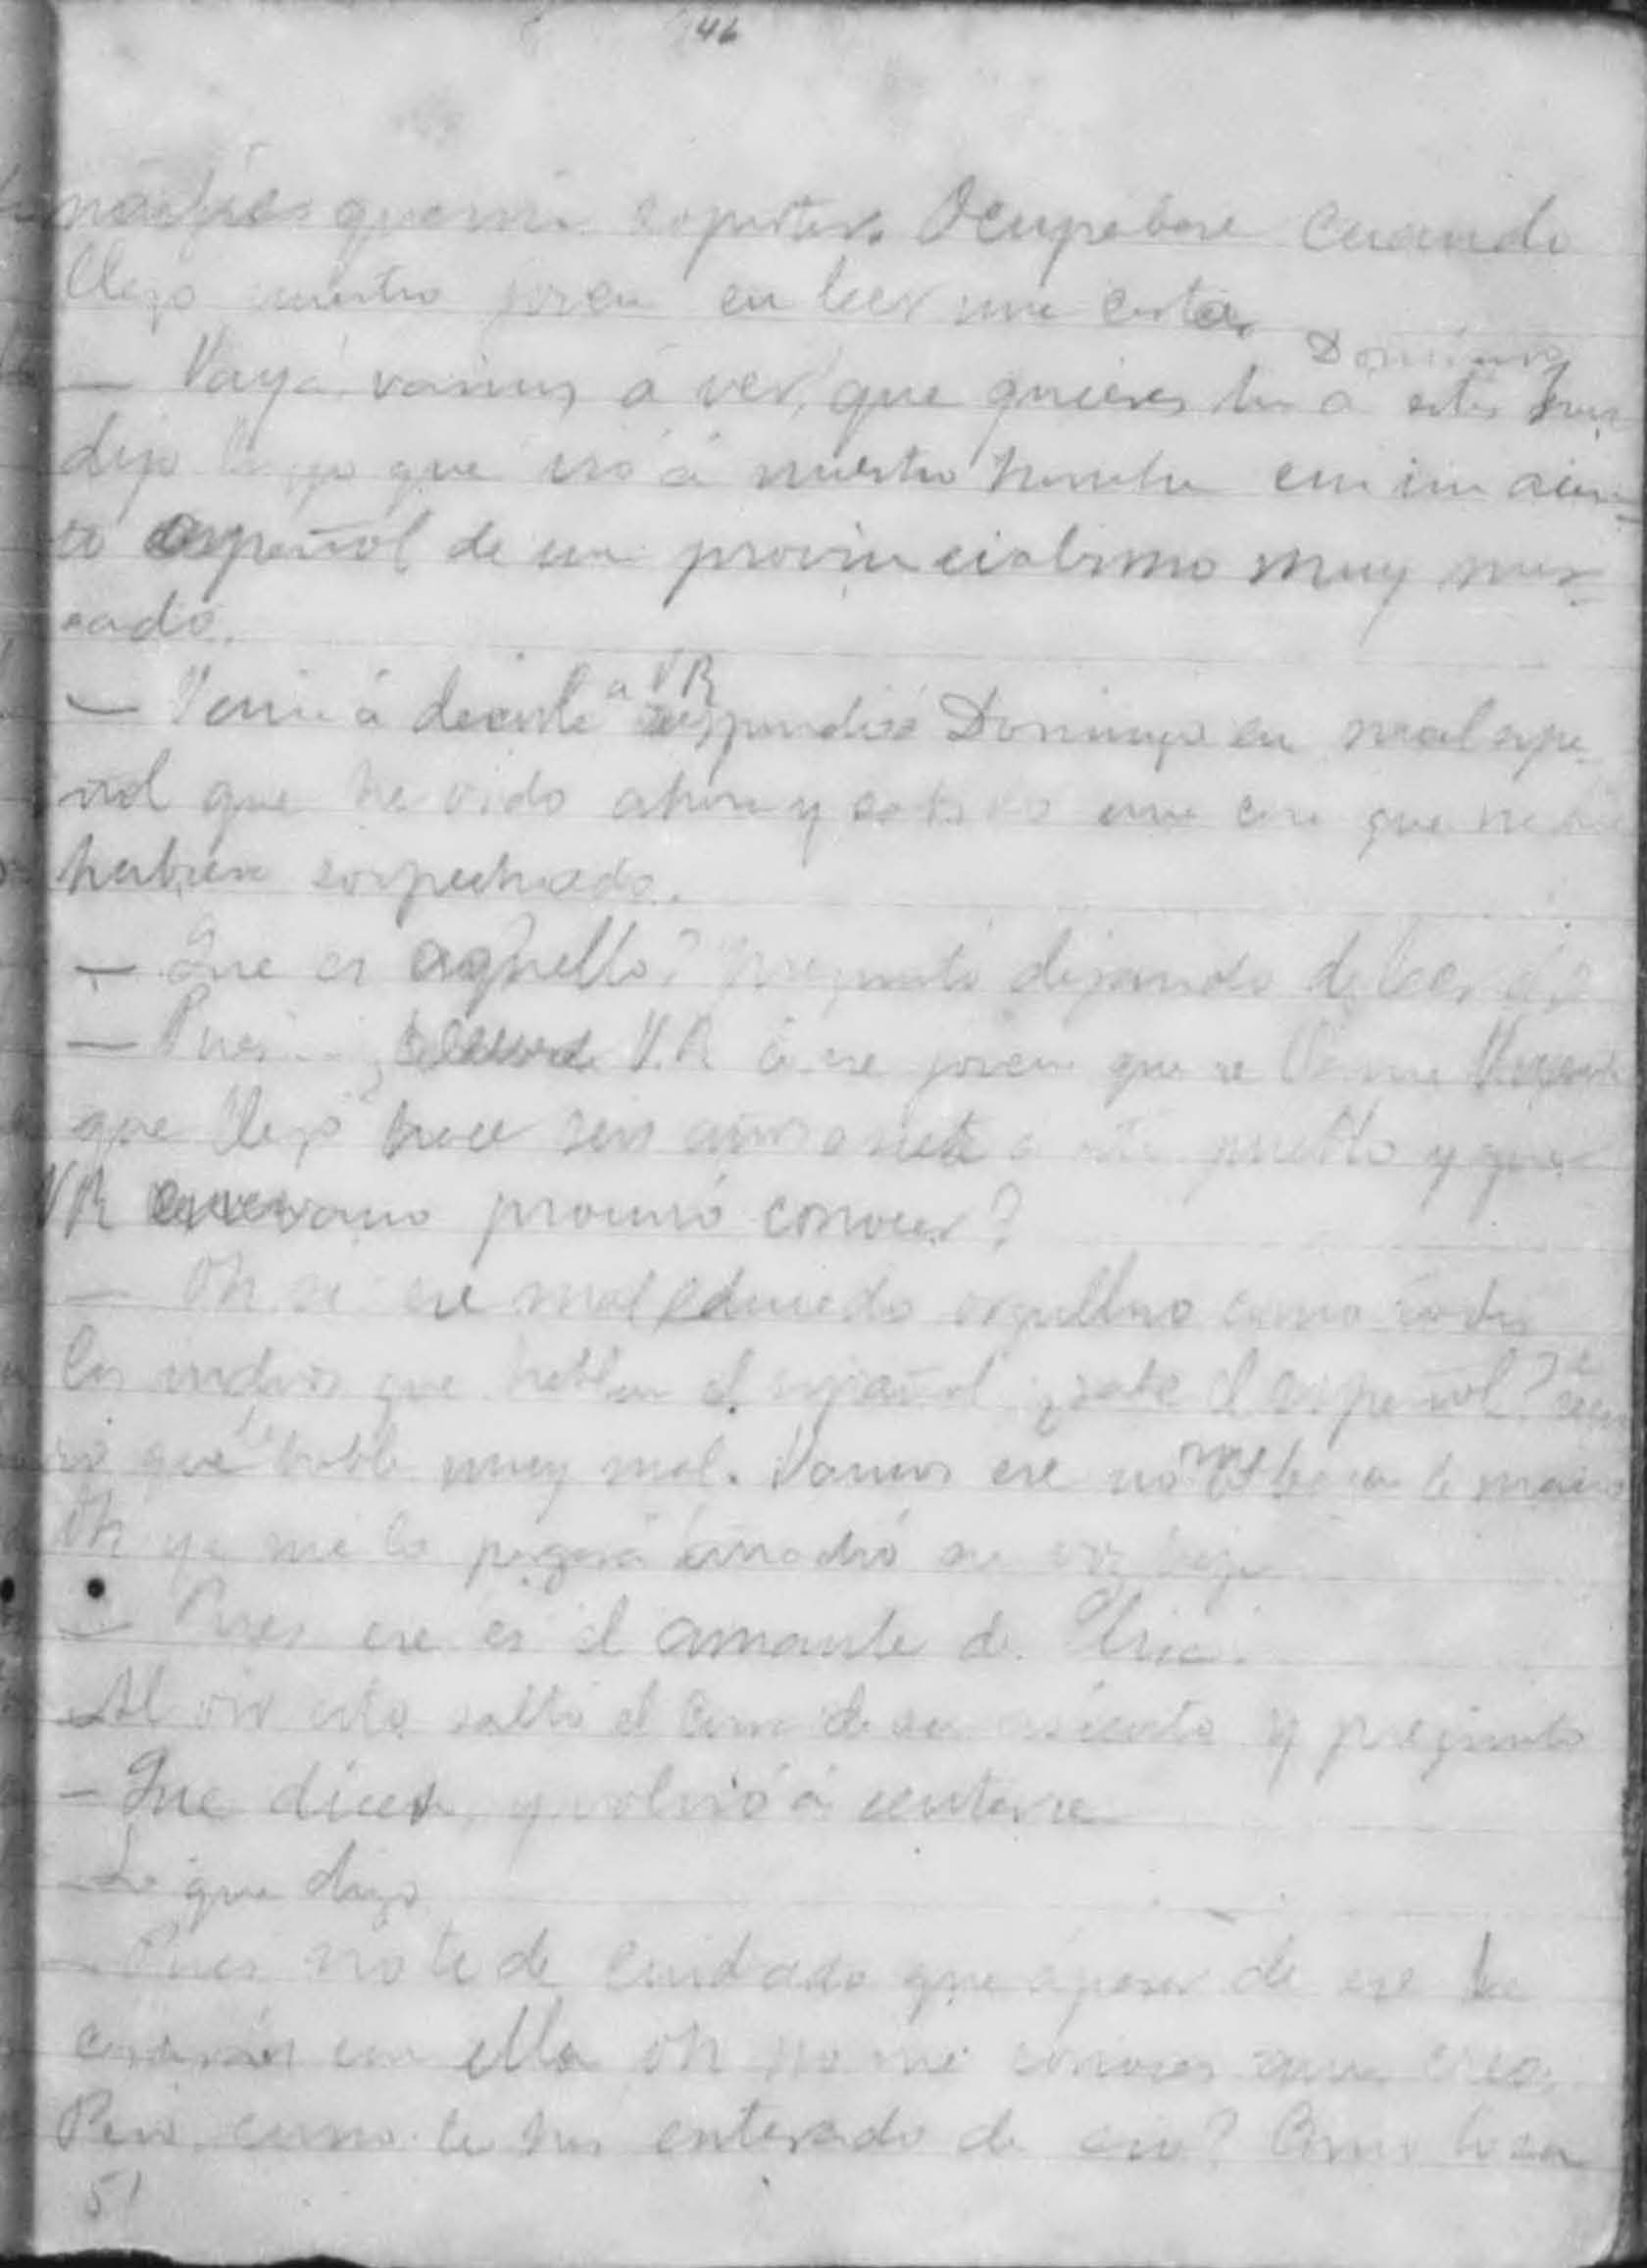 46
querria soportar. Ocupabase cuando
llego nuestro joven en leer una carta.
Domingo
— Vaya vamos á ver, que quieres tu a estas horas
dijo luego que vió á nuestro hombre con un acen-
to español de un provincialismo muy mar-
cado.
a VR
— Venia á decirle respondió Domingo en mal espa-
ñol que he oido ahora y sabido una cosa que no
hubiera sospechado.
— Que es aquello? pregunto dejando de leer
— Pues... ¿recuerda V.R á ese joven que se llama
que llegó hace seis años o siete a este pueblo y que
VR en vano procuró conocer?
— Oh si ese mal educado orgulloso como todos
los indios que hablan el español ¿sabe el español?
que habla muy mal. Vamos ese no me besa la mano
Oh ya me la pagará añadió en voz baja
— Pues ese es el amante de
Al oir esto saltó el cura de su asiento y pregunto
— Que dices, y volvió á sentarse
— Lo que digo
— Pues no te de cuidado que apesar de ese te
casarás con ella oh no me conoces
Pero como te has enterado de eso? Como lo
51